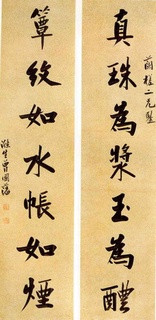 二兄
真珠為漿玉為醴
簟紋如水帳如煙
滌生曾國藩